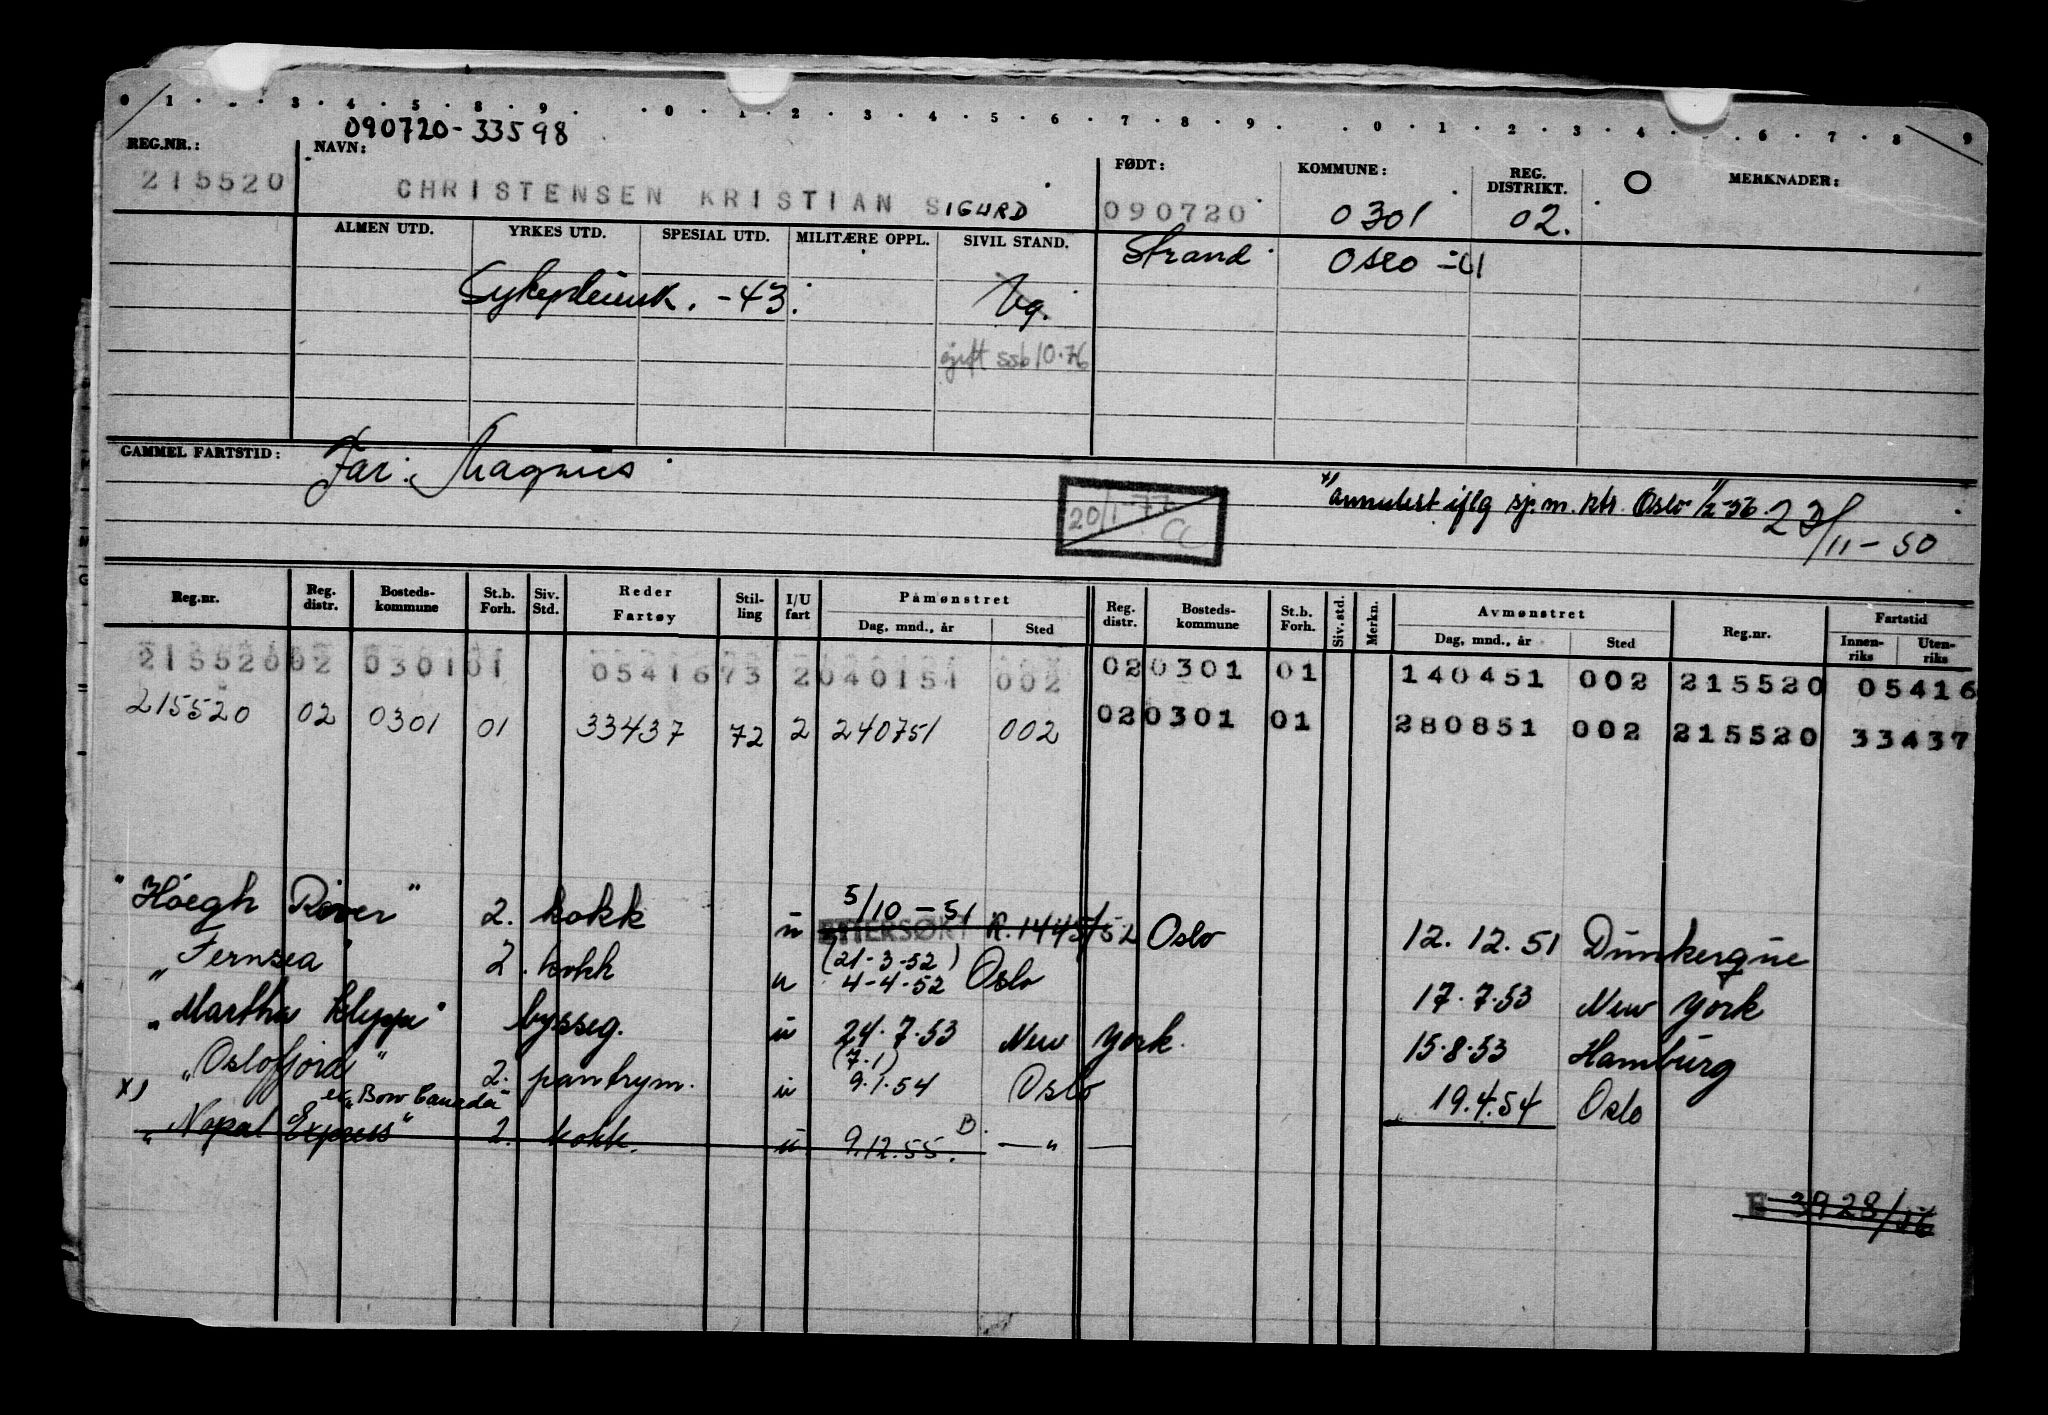 0 1 . . 3 . 4 . 5 . 8 . 9 . . 0 . 1 . 2 . 3 . 4 . 5 . 6 . 7 . 8 . 9 . . 0 . 1 . 2 . 3 . 4 . . 6 . 7 . 8 . 9
090720-33598
REG.NR.: NAVN: FØDT: KOMMUNE: REG. DISTRIKT. O MERKNADER:
215520 CHRISTENSEN KRISTIAN SIGURD 090720 0301 02.
ALMEN UTD. YRKES UTD. SPESIAL UTD. MILITÆRE OPPL. SIVIL STAND. Strand Oslo
-43. Ug.
gift ssb 10.76
GAMMEL FARTSTID: Far: Magnus
20/1-77 CC
x) annulert iflg sj.m.ktr. Oslo 1/2-56. 23/11-50
Reg.nr. Reg. distr. Bosteds-kommune St.b. Forh. Siv. Std. Reder Fartøy Stil-ling I/U fart Påmønstret Reg. distr. Bosteds-kommune St.b. Forh. Siv. std. Merkn. Avmønstret Reg.nr. Fartstid
Dag, mnd., år Sted Dag, mnd., år Sted Innen-riks Uten-riks
215520 02 0301 01 05416 73 2 040151 002 02 0301 01 140451 002 215520 05416
215520 02 0301 01 33437 72 2 240751 002 02 0301 01 280851 002 215520 33437
"Höegh River" 2. kokk u 5/10-51 Oslo 12.12.51 Dunkerque
ETTERSØKT R.1445/52
(21-3-52)
"Fernsea" 2. kokk u 4-4-52 Oslo 17.7.53 New York
"Martha Kleppe" bysseg. u 24.7.53 New York. 15.8.53 Hamburg
(7.1)
"Oslofjord" 2. pantrym. u 9.1.54 Oslo 19.4.54 Oslo
x) "Bow Canada"
"Nopal Express" 2. kokk. u 9.12.55. B. — " —
E 3928/56